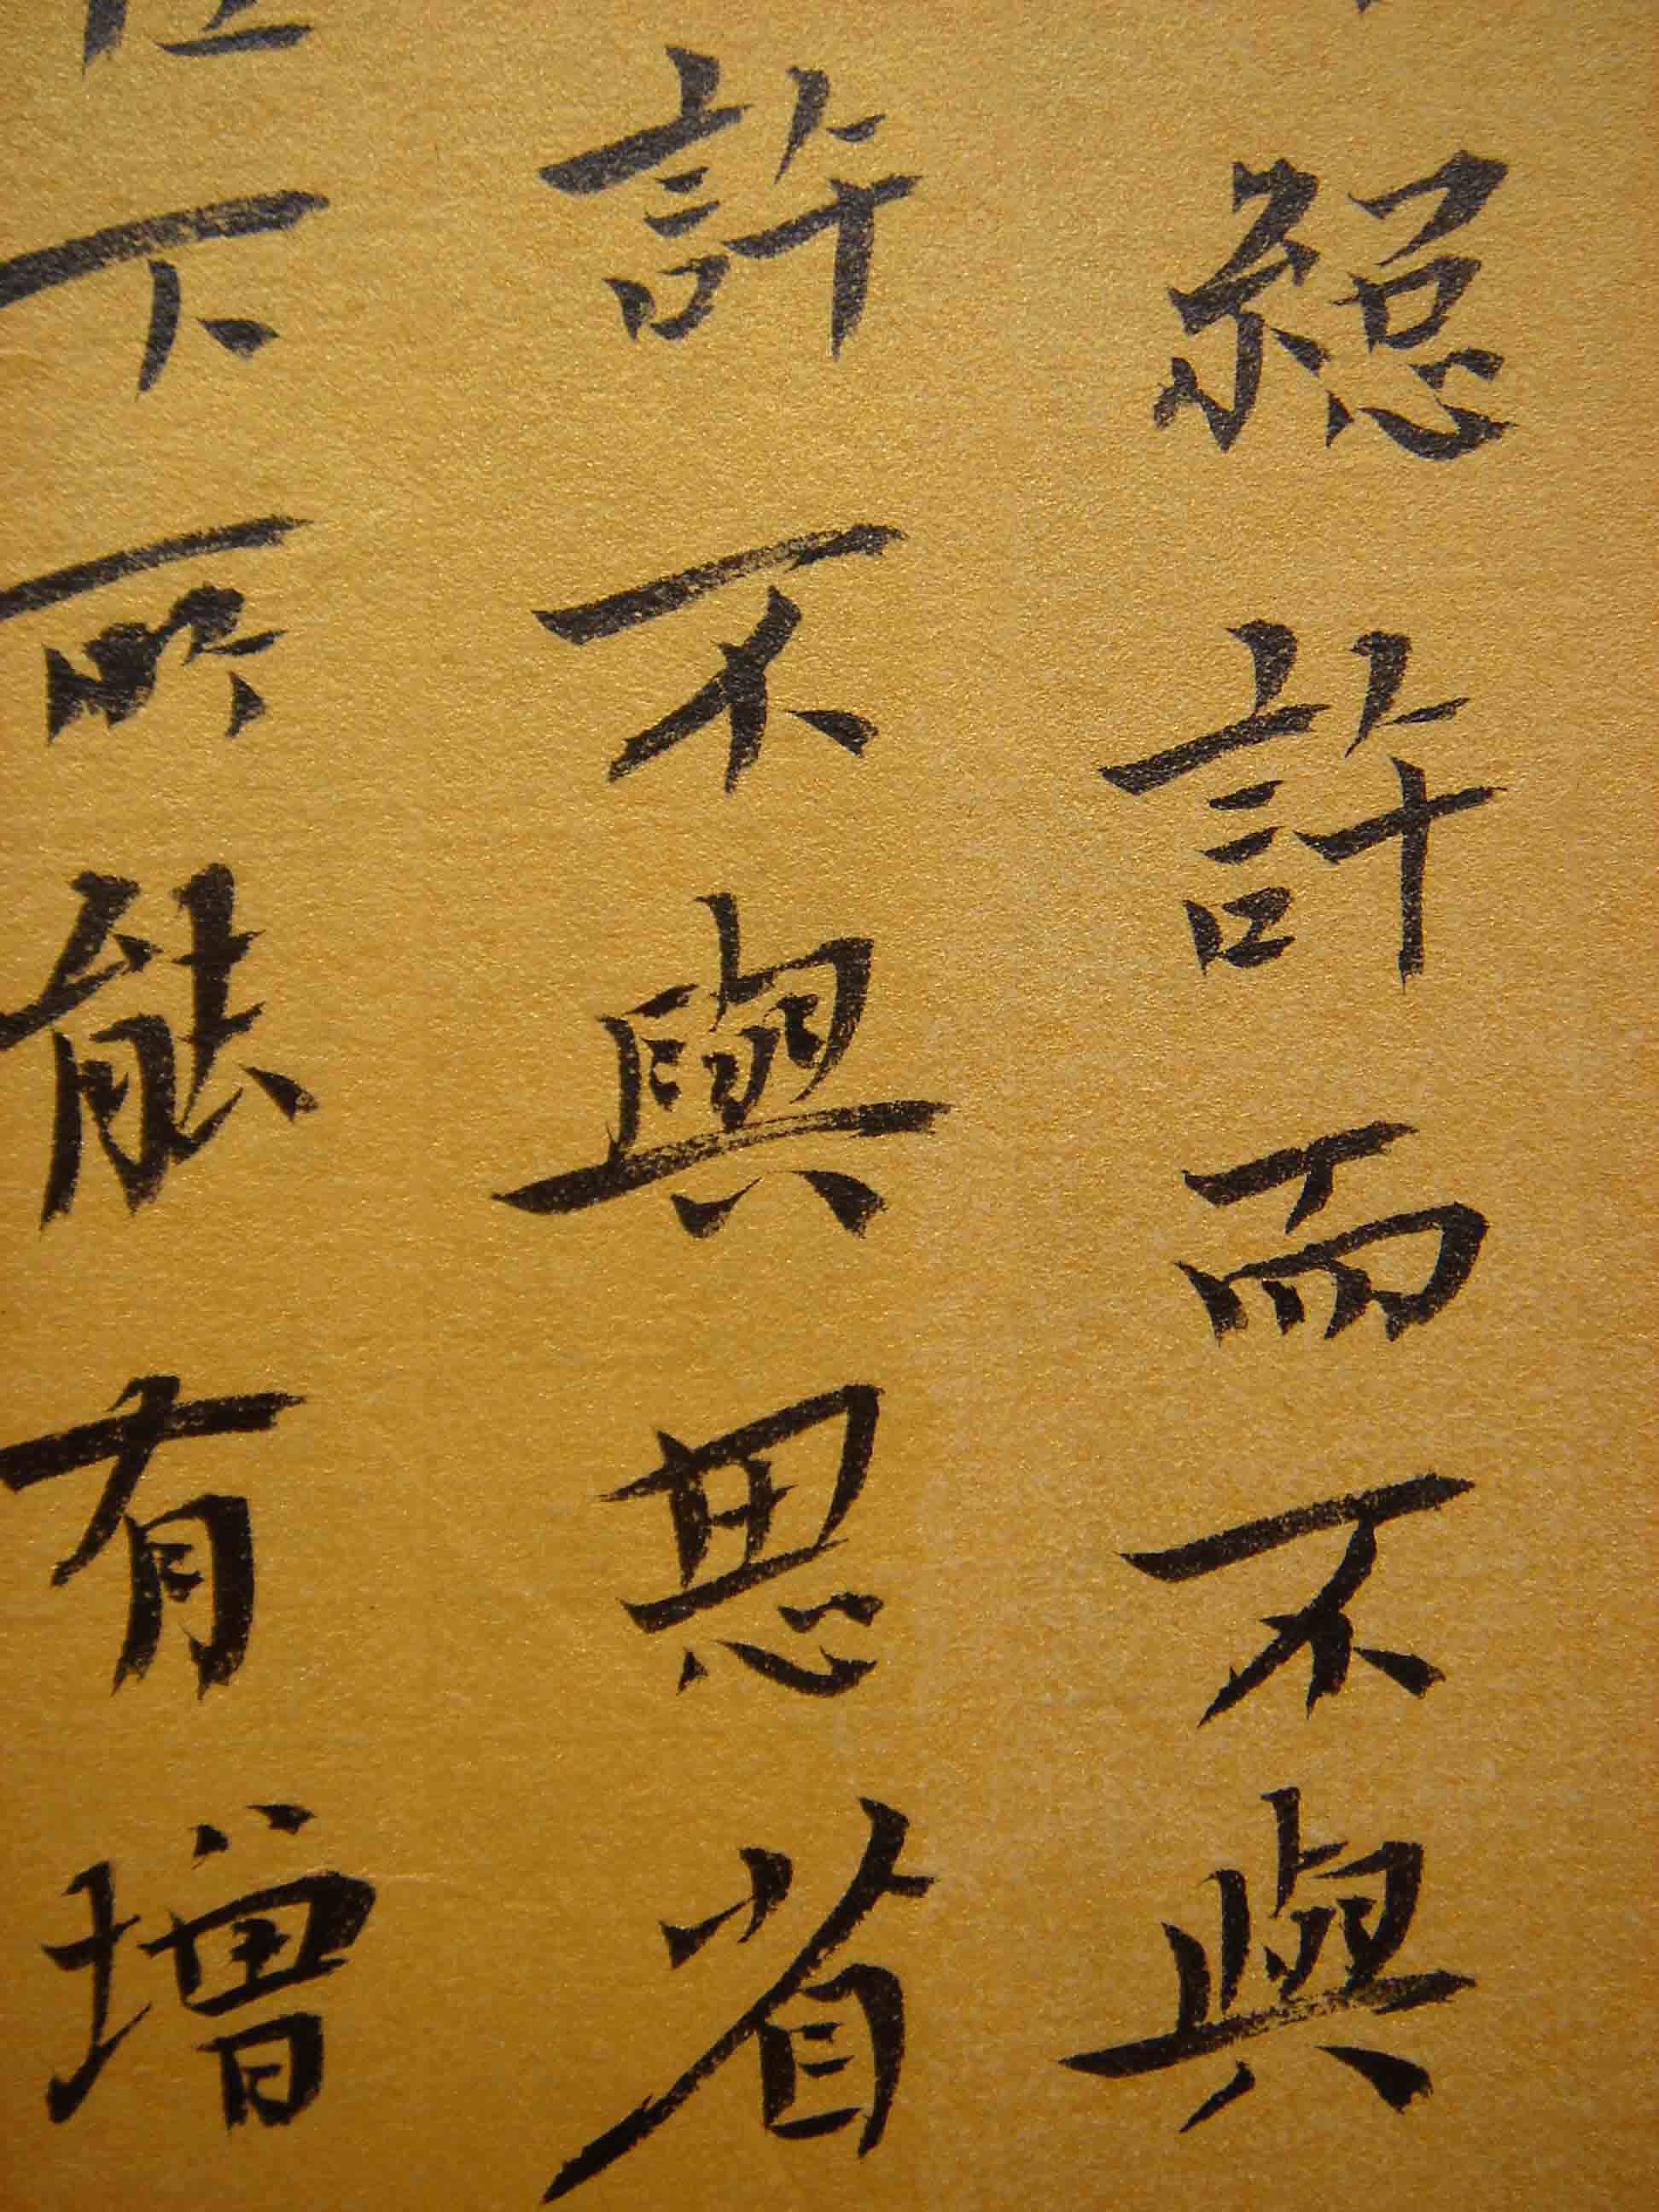 總許而不與
許不與思省
下所能有增